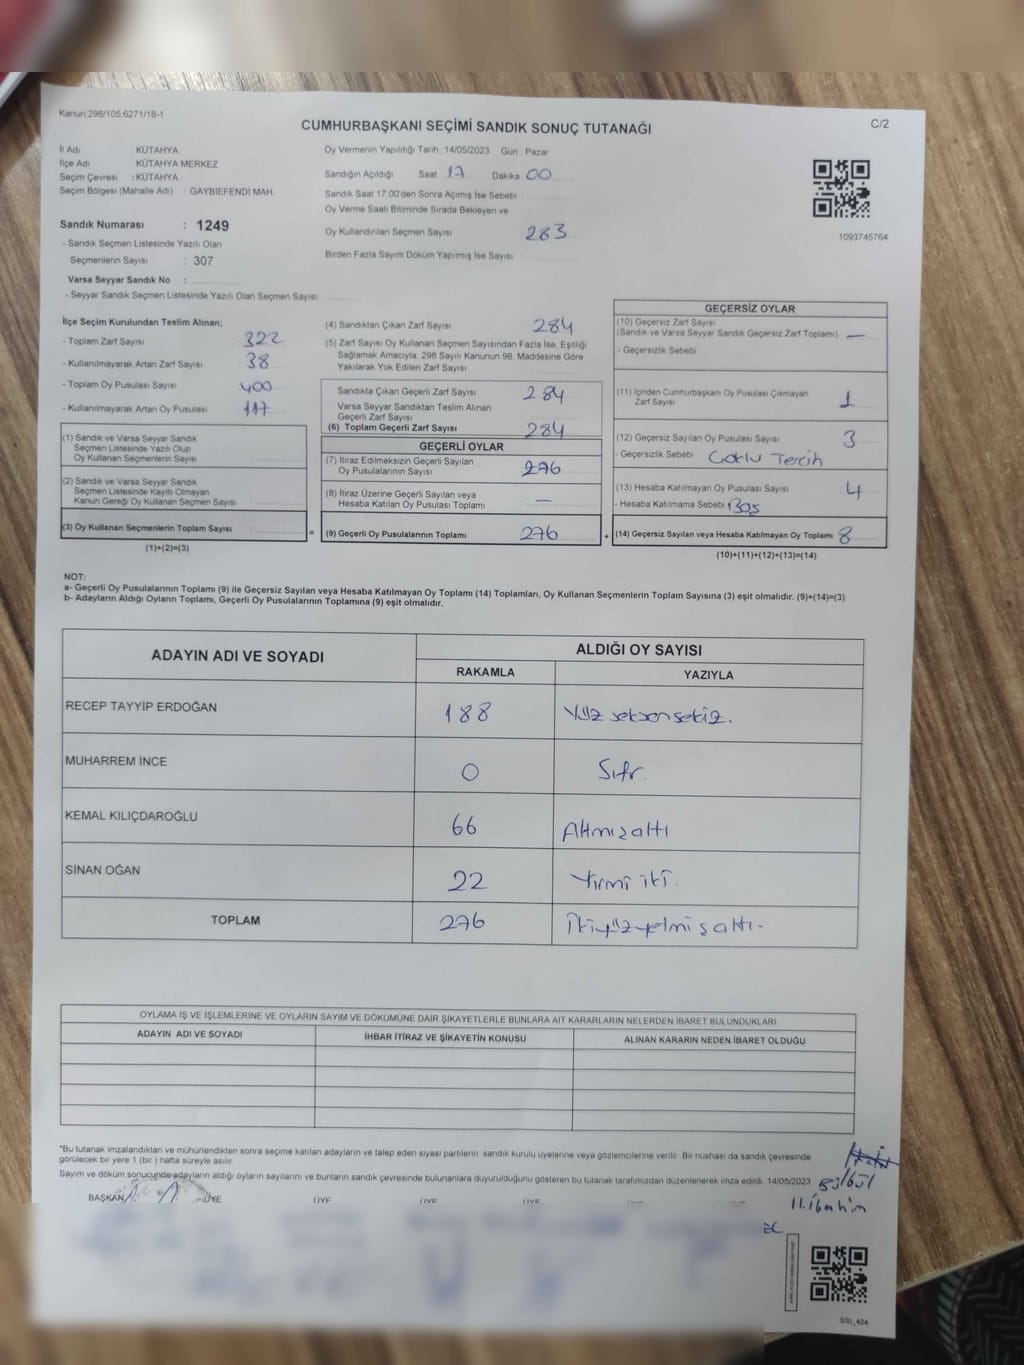 Kanun:298/105;6271/18-1
CUMHURBAŞKANI SEÇİMİ SANDIK SONUÇ TUTANAĞI
C/2
İl Adı KÜTAHYA
İlçe Adı KÜTAHYA MERKEZ
Seçim Çevresi : KÜTAHYA
Seçim Bölgesi (Mahalle Adı) : GAYBİEFENDİ MAH.
Oy Vermenin Yapıldığı Tarih :14/05/2023 Gün : Pazar
Sandığın Açıldığı Saat 17 Dakika 00
Sandık Saat 17:00'den Sonra Açımış İse Sebebi
Oy Verme Saati Bitiminde Sırada Bekleyen ve
Oy Kullandırılan Seçmen Sayısı 283
Birden Fazla Sayım Döküm Yapılmış İse Sayısı
1093745764
Sandık Numarası : 1249
- Sandık Seçmen Listesinde Yazılı Olan
Seçmenlerin Sayısı : 307
Varsa Seyyar Sandık No :
- Seyyar Sandık Seçmen Listesinde Yazılı Olan Seçmen Sayısı
İlçe Seçim Kurulundan Teslim Alınan;
- Toplam Zarf Sayısı 322
- Kullanılmayarak Artan Zarf Sayısı 38
- Toplam Oy Pusulası Sayısı 400
- Kullanılmayarak Artan Oy Pusulası 117
(1) Sandık ve Varsa Seyyar Sandık
Seçmen Listesinde Yazılı Olup
Oy Kullanan Seçmenlerin Sayısı
(2) Sandık ve Varsa Seyyar Sandık
Seçmen Listesinde Kayıtlı Olmayan
Kanun Gereği Oy Kullanan Seçmen Sayısı
(3) Oy Kullanan Seçmenlerin Toplam Sayısı
(1)+(2)=(3)
=
(4) Sandıktan Çıkan Zarf Sayısı 284
(5) Zarf Sayısı Oy Kullanan Seçmen Sayısından Fazla İse, Eşitliği
Sağlamak Amacıyla; 298 Sayılı Kanunun 98. Maddesine Göre
Yakılarak Yok Edilen Zarf Sayısı
Sandıkta Çıkan Geçerli Zarf Sayısı 284
Varsa Seyyar Sandıktan Teslim Alınan
Geçerli Zarf Sayısı
(6) Toplam Geçerli Zarf Sayısı 284
GEÇERLİ OYLAR
(7) İtiraz Edilmeksizin Geçerli Sayılan
Oy Pusulalarının Sayısı 276
(8) İtiraz Üzerine Geçerli Sayılan veya
Hesaba Katılan Oy Pusulası Toplamı —
(9) Geçerli Oy Pusulalarının Toplamı 276
+
GEÇERSİZ OYLAR
(10) Geçersiz Zarf Sayısı
(Sandık ve Varsa Seyyar Sandık Geçersiz Zarf Toplamı) —
- Geçersizlik Sebebi
(11) İçinden Cumhurbaşkanı Oy Pusulası Çıkmayan
Zarf Sayısı 1
(12) Geçersiz Sayılan Oy Pusulası Sayısı 3
- Geçersizlik Sebebi Çoklu Tercih
(13) Hesaba Katılmayan Oy Pusulası Sayısı 4
- Hesaba Katılmama Sebebi Boş
(14) Geçersiz Sayılan veya Hesaba Katılmayan Oy Toplamı 8
(10)+(11)+(12)+(13)=(14)
NOT:
a- Geçerli Oy Pusulalarının Toplamı (9) ile Geçersiz Sayılan veya Hesaba Katılmayan Oy Toplamı (14) Toplamları, Oy Kullanan Seçmenlerin Toplam Sayısına (3) eşit olmalıdır. (9)+(14)=(3)
b- Adayların Aldığı Oyların Toplamı, Geçerli Oy Pusulalarının Toplamına (9) eşit olmalıdır.
ADAYIN ADI VE SOYADI
ALDIĞI OY SAYISI
RAKAMLA YAZIYLA
RECEP TAYYİP ERDOĞAN 188 Yüz seksen sekiz.
MUHARREM İNCE 0 Sıfır.
KEMAL KILIÇDAROĞLU 66 Altmışaltı
SİNAN OĞAN 22 Yirmi iki.
TOPLAM 276 İkiyüzyetmişaltı.
OYLAMA İŞ VE İŞLEMLERİNE VE OYLARIN SAYIM VE DÖKÜMÜNE DAİR ŞİKAYETLERLE BUNLARA AİT KARARLARIN NELERDEN İBARET BULUNDUKLARI
ADAYIN ADI VE SOYADI İHBAR İTİRAZ VE ŞİKAYETİN KONUSU ALINAN KARARIN NEDEN İBARET OLDUĞU
*Bu tutanak imzalandıktan ve mühürlendikten sonra seçime katılan adayların ve talep eden siyasi partilerin sandık kurulu üyelerine veya gözlemcilerine verilir. Bir nushası da sandık çevresinde
görülecek bir yere 1 (bir ) hafta süreyle asılır.
Sayım ve döküm sonucunda adayların aldığı oyların sayılarını ve bunların sandık çevresinde bulunanlara duyurulduğunu gösteren bu tutanak tarafımızdan düzenlenerek imza edildi. 14/05/2023
Bülbül
H.İbrahim
BAŞKAN ÜYE ÜYE ÜYE ÜYE
SSI_404